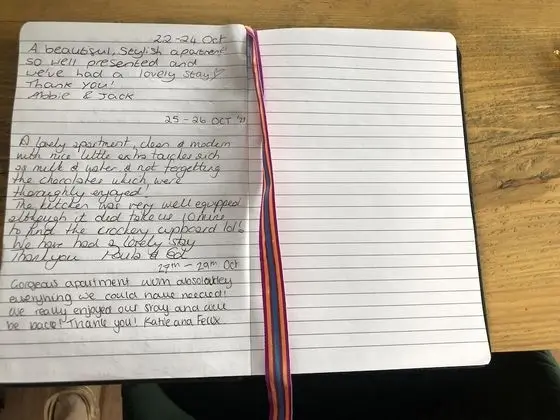 22-24 Oct
A beautiful, stylish apartment
so well presented and
we've had a lovely stay
Thank you!
& Jack
25 - 26 OCT '21
A lovely apartment, clean & modern
with nice little extra touches such
as milk & water & not forgetting
the chocolates which were
thoroughly enjoyed!
The kitchen was very well equipped
although it did take us 10 mins
to find the crockery cupboard lol!
We have had a lovely stay
Thankyou Paula &
27th - 29th Oct
Gorgeous apartment with absolutley
everything we could have needed!
We really enjoyed our stay and will
be back! Thank you! Katie and Felix